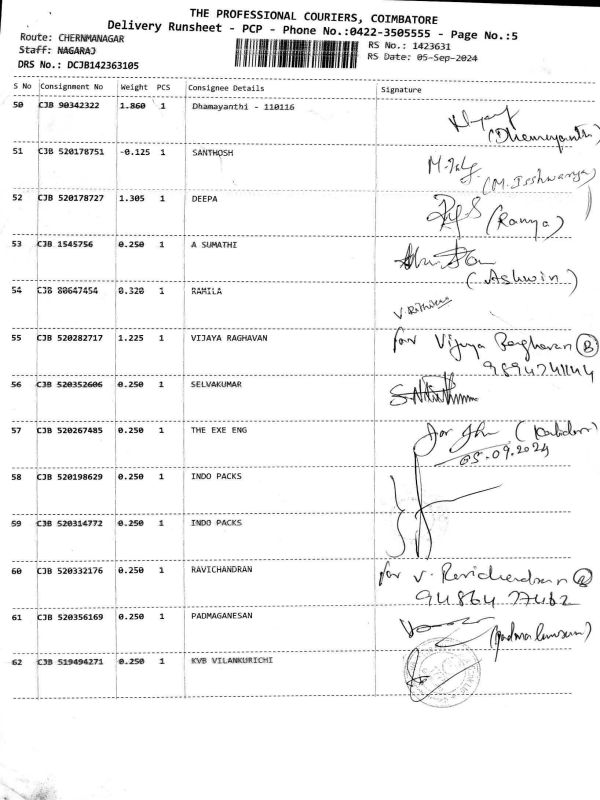 THE PROFESSIONAL COURIERS, COIMBATORE
Delivery Runsheet - PCP - Phone No.:0422-3505555 - Page No.:5
Route: CHERNMANAGAR
RS No.: 1423631
Staff: NAGARAJ
RS Date: 05-Sep-2024
DRS No.: DCJB142363105
S No Consignment No Weight PCS Consignee Details Signature
50 CJB 90342322 1.860 1 Dhamayanthi - 110116
(Dhamayanthi)
51 CJB 520178751 -0.125 1 SANTHOSH
(M. Isshwarya)
52 CJB 520178727 1.305 1 DEEPA (Ramya)
53 CJB 1545756 0.250 1 A SUMATHI
(Ashwin)
54 CJB 80647454 0.320 1 RAMILA
V. Rithika
55 CJB 520282717 1.225 1 VIJAYA RAGHAVAN for Vijaya Raghavan B
9894741144
56 CJB 520352606 0.250 1 SELVAKUMAR
57 CJB 520267485 0.250 1 THE EXE ENG
05.09.2024
58 CJB 520198629 0.250 1 INDO PACKS
59 CJB 520314772 0.250 1 INDO PACKS
60 CJB 520332176 0.250 1 RAVICHANDRAN for V. Ravichandran B
94864 77462
61 CJB 520356169 0.250 1 PADMAGANESAN
62 CJB 519494271 0.250 1 KVB VILANKURICHI